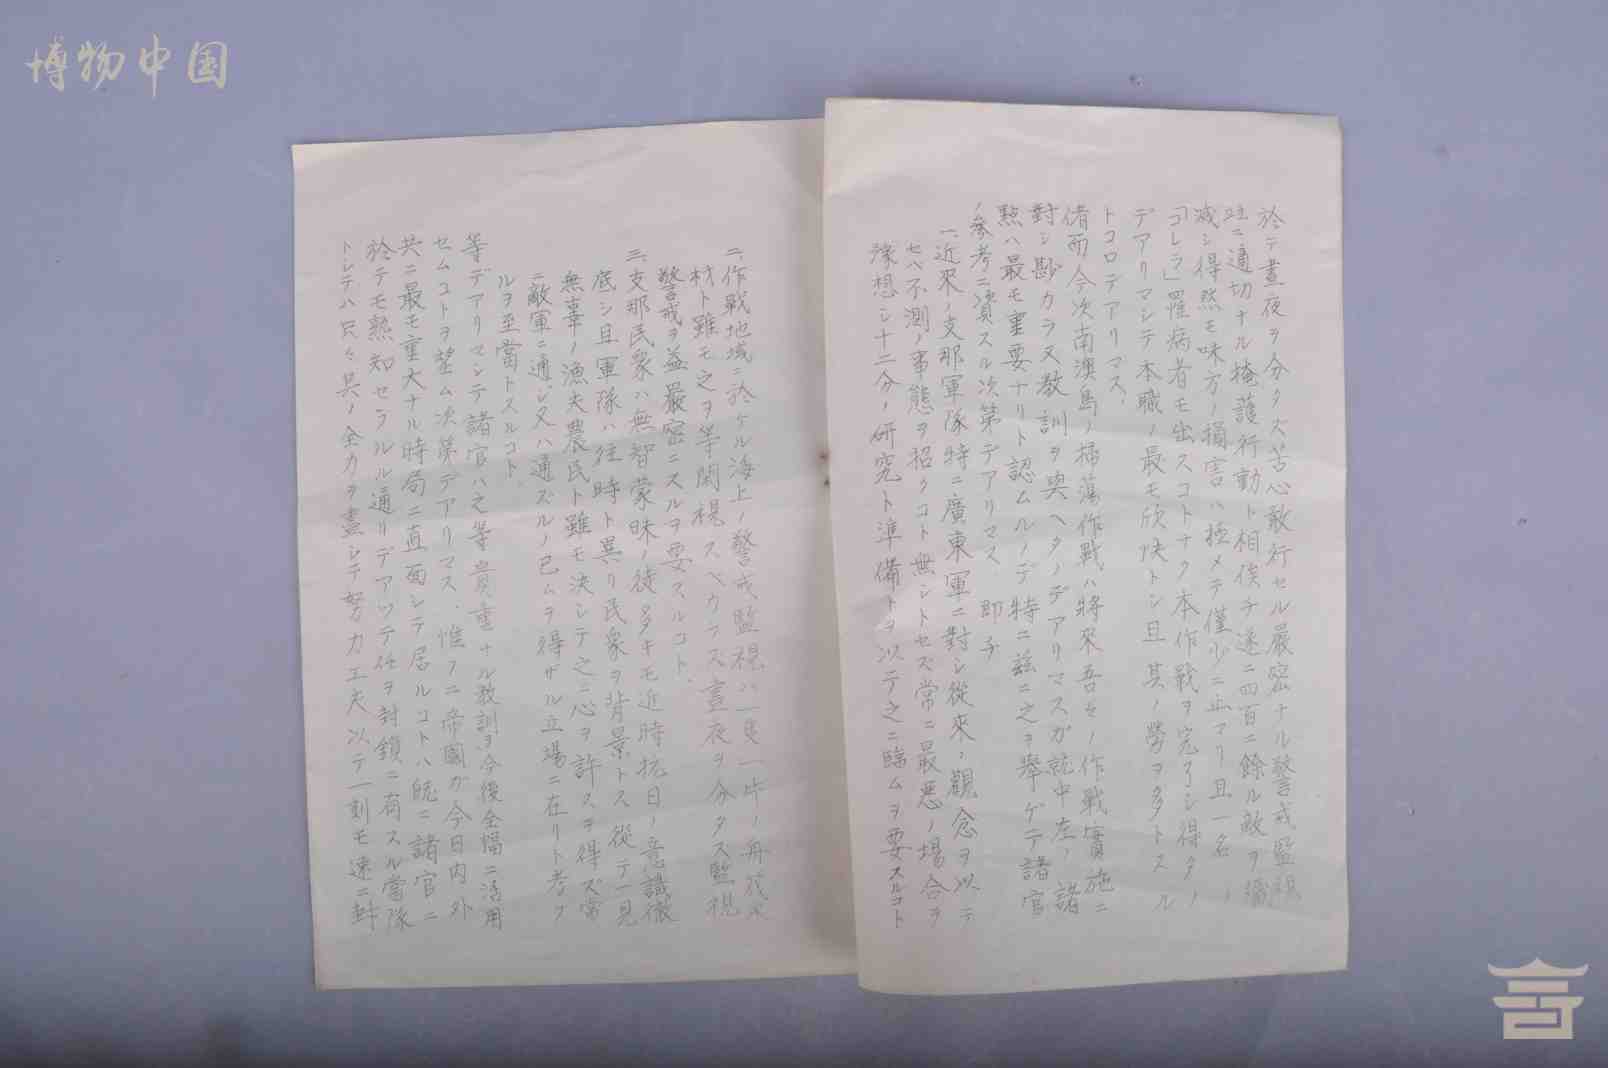 博物中国
於テ晝夜ヲ分タズ苦心敢行セル嚴密ナル警戒監視
竝ニ適切ナル掩護行動ト相俟チ遂ニ四百ニ餘ル敵ヲ殲
滅シ得然モ味方ノ損害ハ極メテ僅少ニ止マリ且一名ノ
「コレラ」罹病者モ出スコトナク本作戰ヲ完了シ得タノ
デアリマシテ本職ノ最モ欣快トシ且其ノ勞ヲ多トスル
トコロデアリマス、
偖而今次南澳島ノ掃蕩作戰ハ將來吾々ノ作戰實施ニ
對シ尠カラヌ教訓ヲ與ヘタノデアリマスガ就中左ノ諸
點ハ最モ重要ナリト認ムルノデ特ニ茲ニ之ヲ擧ゲテ諸官
ノ參考ニ資スル次第デアリマス、即チ
一、近來ノ支那軍隊特ニ廣東軍ニ對シ從來ノ觀念ヲ以テ
セバ不測ノ事態ヲ招クコト無シトセズ常ニ最悪ノ場合ヲ
豫想シ十二分ノ研究ト準備トヲ以テ之ニ臨ムヲ要スルコト
二、作戰地域ニ於ケル海上ノ警戒監視ハ一隻一片ノ舟筏木
材ト雖モ之ヲ等閑視スベカラズ晝夜ヲ分タズ監視
警戒ヲ益嚴密ニスルヲ要スルコト、
三、支那民衆ハ無智蒙昧ノ徒多キモ近時抗日ノ意識徹
底シ且軍隊ハ往時ト異リ民衆ヲ背景トス從テ一見
無辜ノ漁夫農民ト雖モ決シテ之ニ心ヲ許スヲ得ズ常
ニ敵軍ニ通ジ又ハ通ズルノ已ムヲ得ザル立場ニ在リト考フ
ルヲ至當トスルコト、
等デアリマシテ諸官ハ之等貴重ナル教訓ヲ今後全幅ニ活用
セムコトヲ望ム次第デアリマス、惟フニ帝國ガ今日内外
共ニ最モ重大ナル時局ニ直面シテ居ルコトハ既ニ諸官ニ
於テモ熟知セラルル通リデアツテ任ヲ封鎖ニ有スル當隊
トシテハ只々其ノ全力ヲ盡シテ努力工夫以テ一刻モ速ニ封